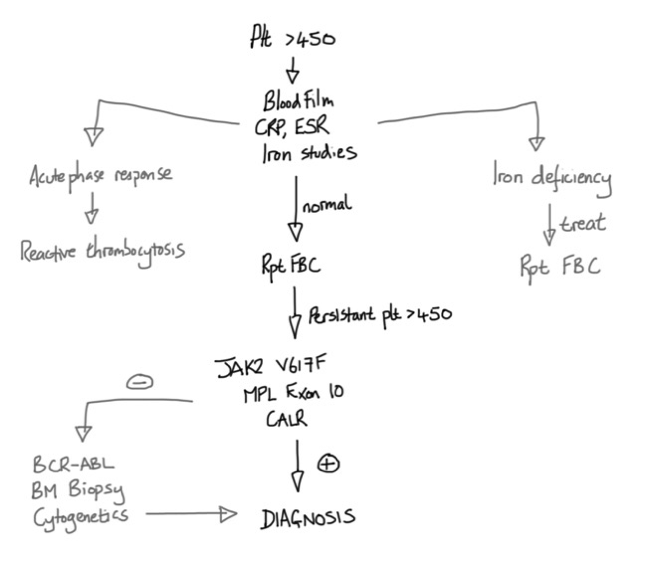 Plt >450
Blood Film
CRP, ESR
Iron studies
Acute phase response
Iron deficiency
normal
treat
Reactive thrombocytosis
Rpt FBC
Rpt FBC
Persistant plt >450
JAK2 V617F
MPL Exon 10
CALR
−
BCR-ABL
BM Biopsy
Cytogenetics
+
DIAGNOSIS